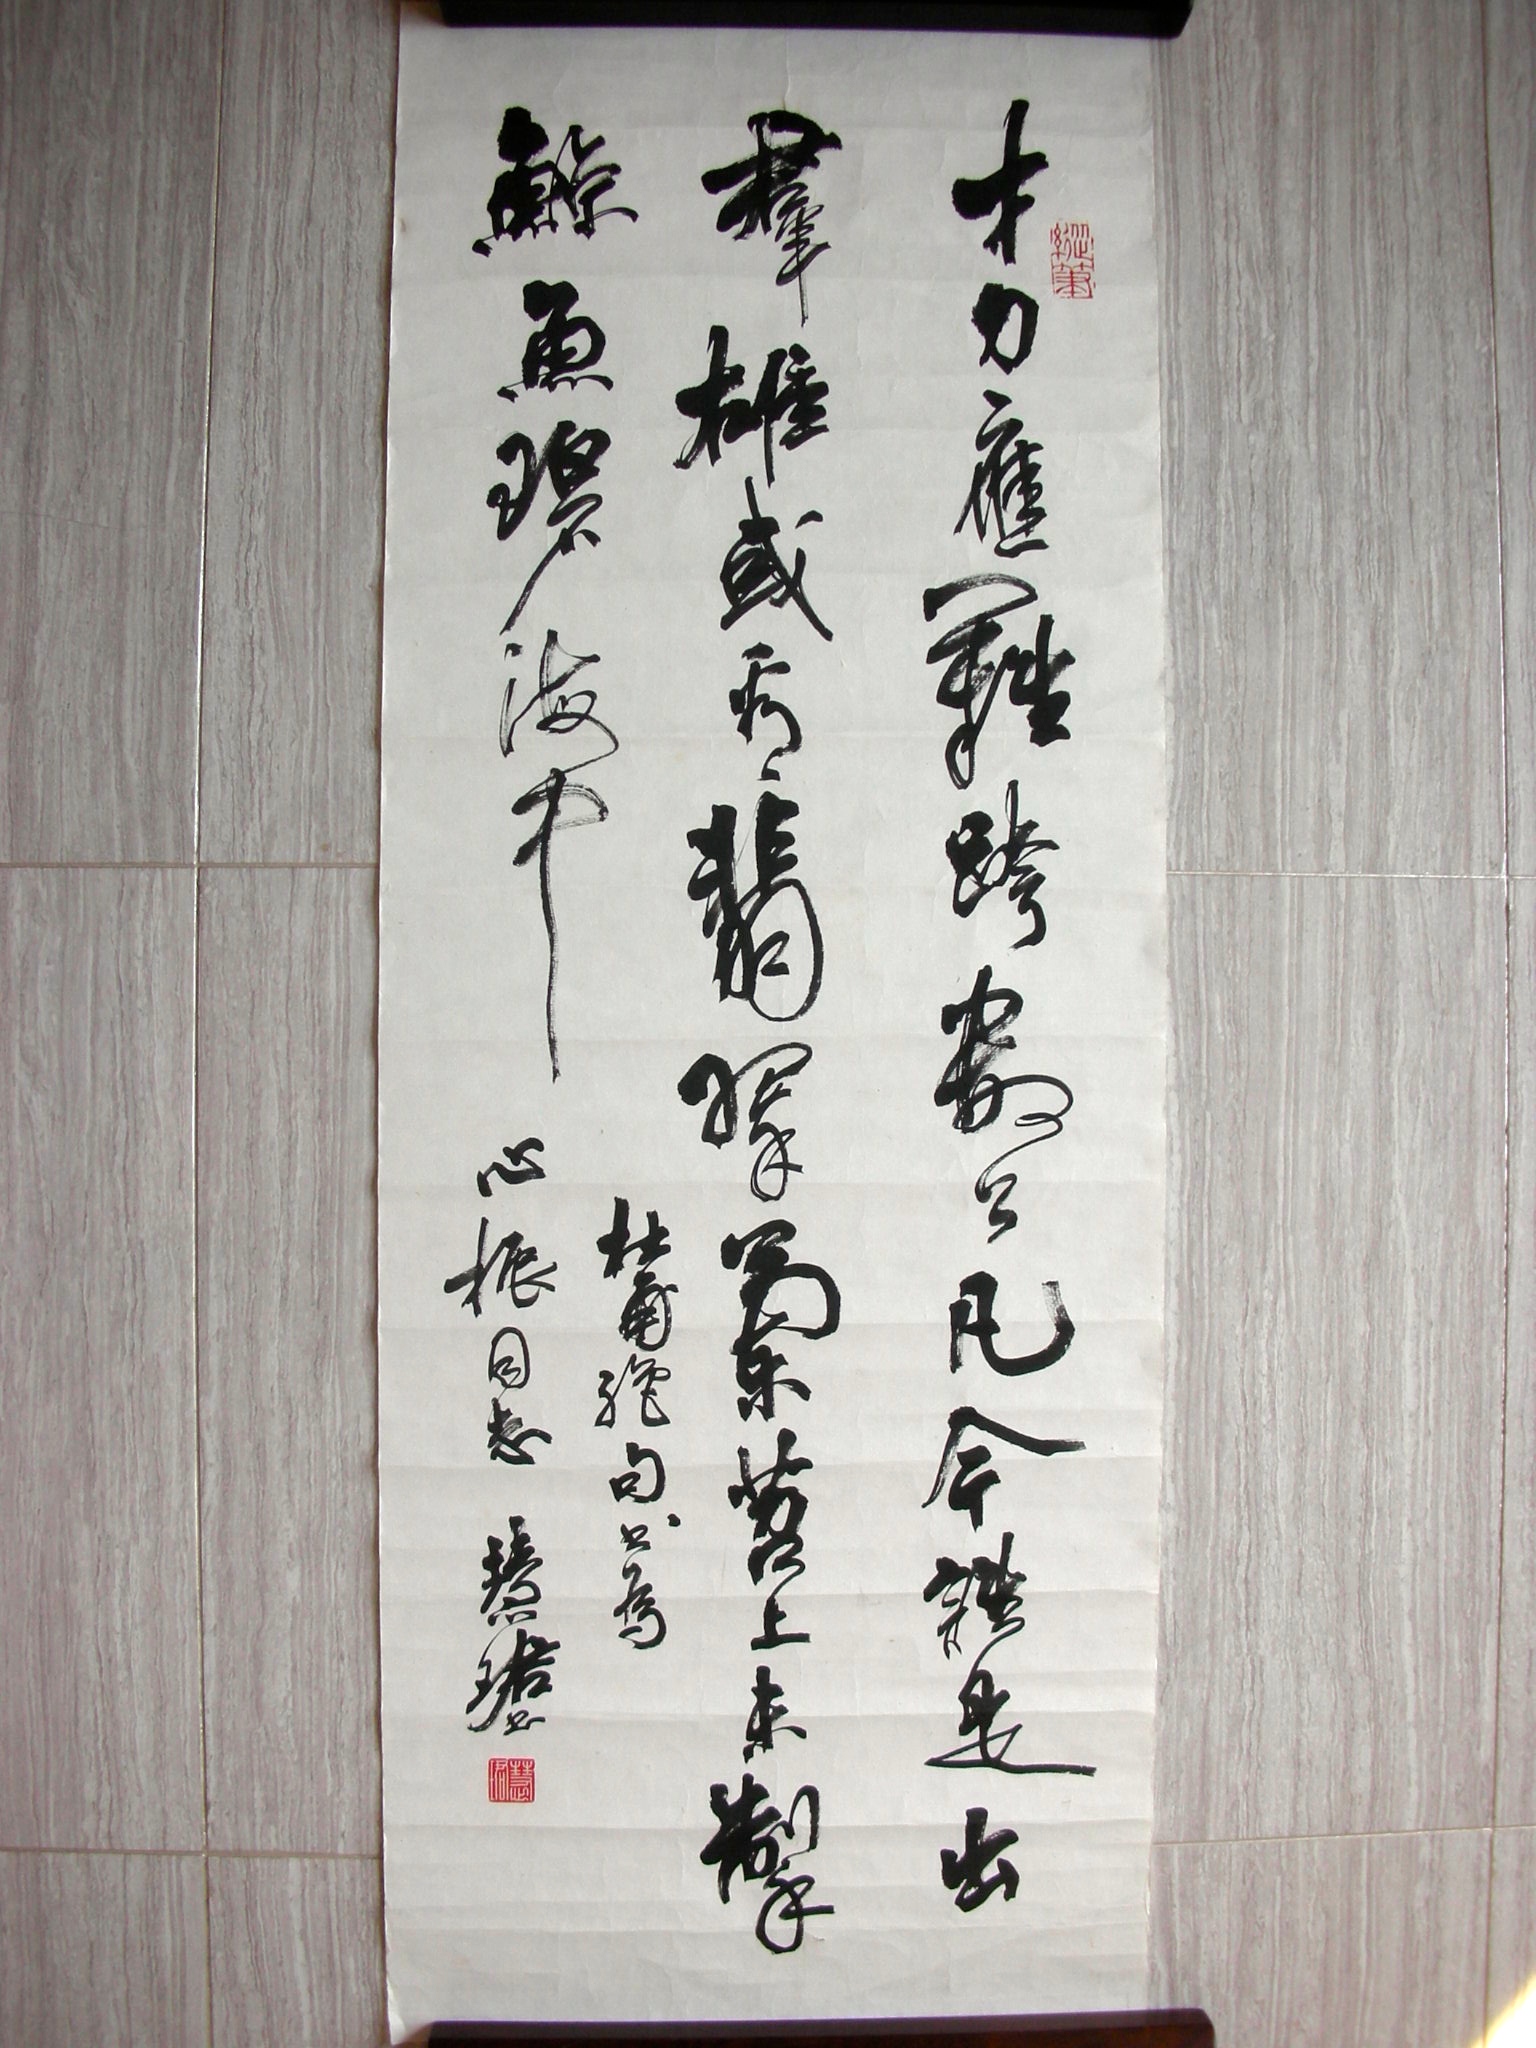 才力應難跨數公凡今誰是出
羣雄或看翡翠蘭苕上未掣
鯨魚碧海中
杜甫絕句書為
心振同志 慧珺書
縱筆
慧珺